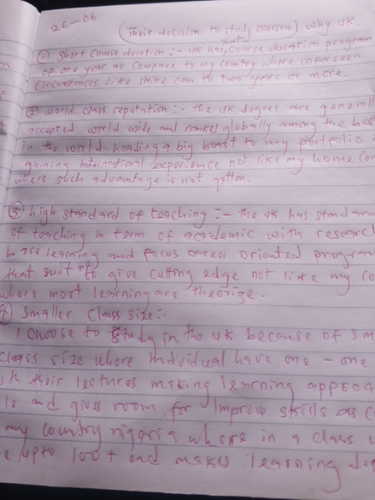 26-06
(Their decision to study oversea) why UK.
(1) Short course duration:- UK has short course duration program
of one year as compare to my country where unforseen
circumstances like strike can to two years or more.
(2) World class reputation:- The UK degree are generally
accepted world wide and ranked globally among the best
in the world. boost to my portfolio
gaining international experience not like my home
where such advantage is not gotten.
(3) high standard of teaching:- The UK has standard
of teaching in term of academic with research
learning and focus career oriented program
that suit to give cutting edge not like my
where most learning are theorize.
Smaller class size:-
I choose to study in the UK because of
class size where individual have one - one
their lectures making learning
and gives room for improve skills as
my country nigeria where in a class
upto 100+ and makes learning